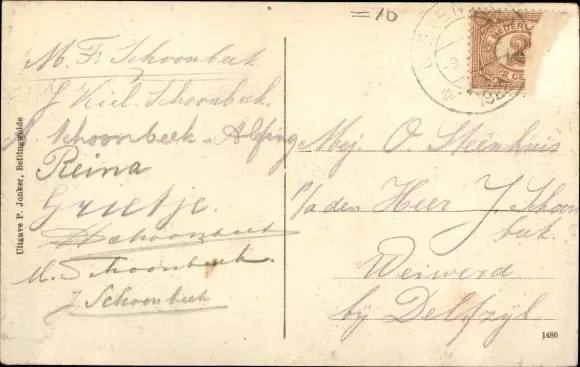 =10
M. Fr. Schoonbeek
J Kiel-Schoonbeek.
A Schoonbeek-Alfing
Reina
Grietje.
H Schoonbeek
M. Schoonbeek.
J Schoonbeek
Uitgave P. Jonker, Bellingwolde
NEDERL
2
CE
192
Mej. O. Steenhuis
p/a den Heer J. Schoon
beek.
Weiwerd
bij Delfzijl
1486